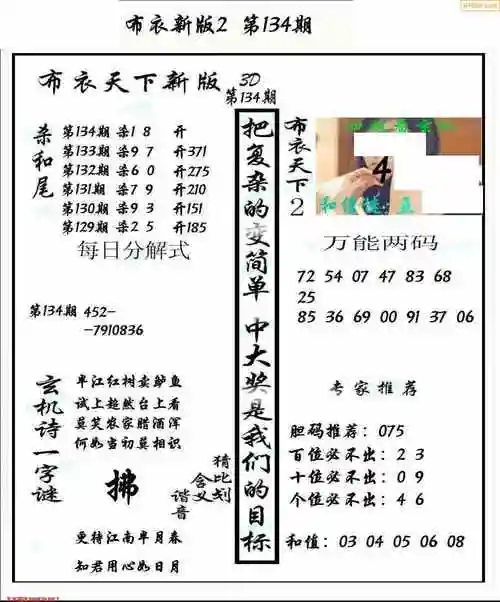 布衣新版2 第134期
布衣天下新版 3D
第134期
杀和尾
第134期 杀1 8 开
第133期 杀9 7 开371
第132期 杀6 0 开275
第131期 杀7 9 开210
第130期 杀9 3 开151
第129期 杀2 5 开185
每日分解式
第134期 452-
-7910836
玄机诗一字谜
半江红树卖鲈鱼
试上超然台上看
莫笑农家腊酒浑
何如当初莫相识
拂
猜比划
含义
谐音
更待江南半月春
知君用心如日月
把复杂的变简单 中大奖是我们的目标
布衣天下2
4
万能两码
72 54 07 47 83 68
25
85 36 69 00 91 37 06
专家推荐
胆码推荐: 075
百位必不出: 2 3
十位必不出: 0 9
个位必不出: 4 6
和值: 03 04 05 06 08